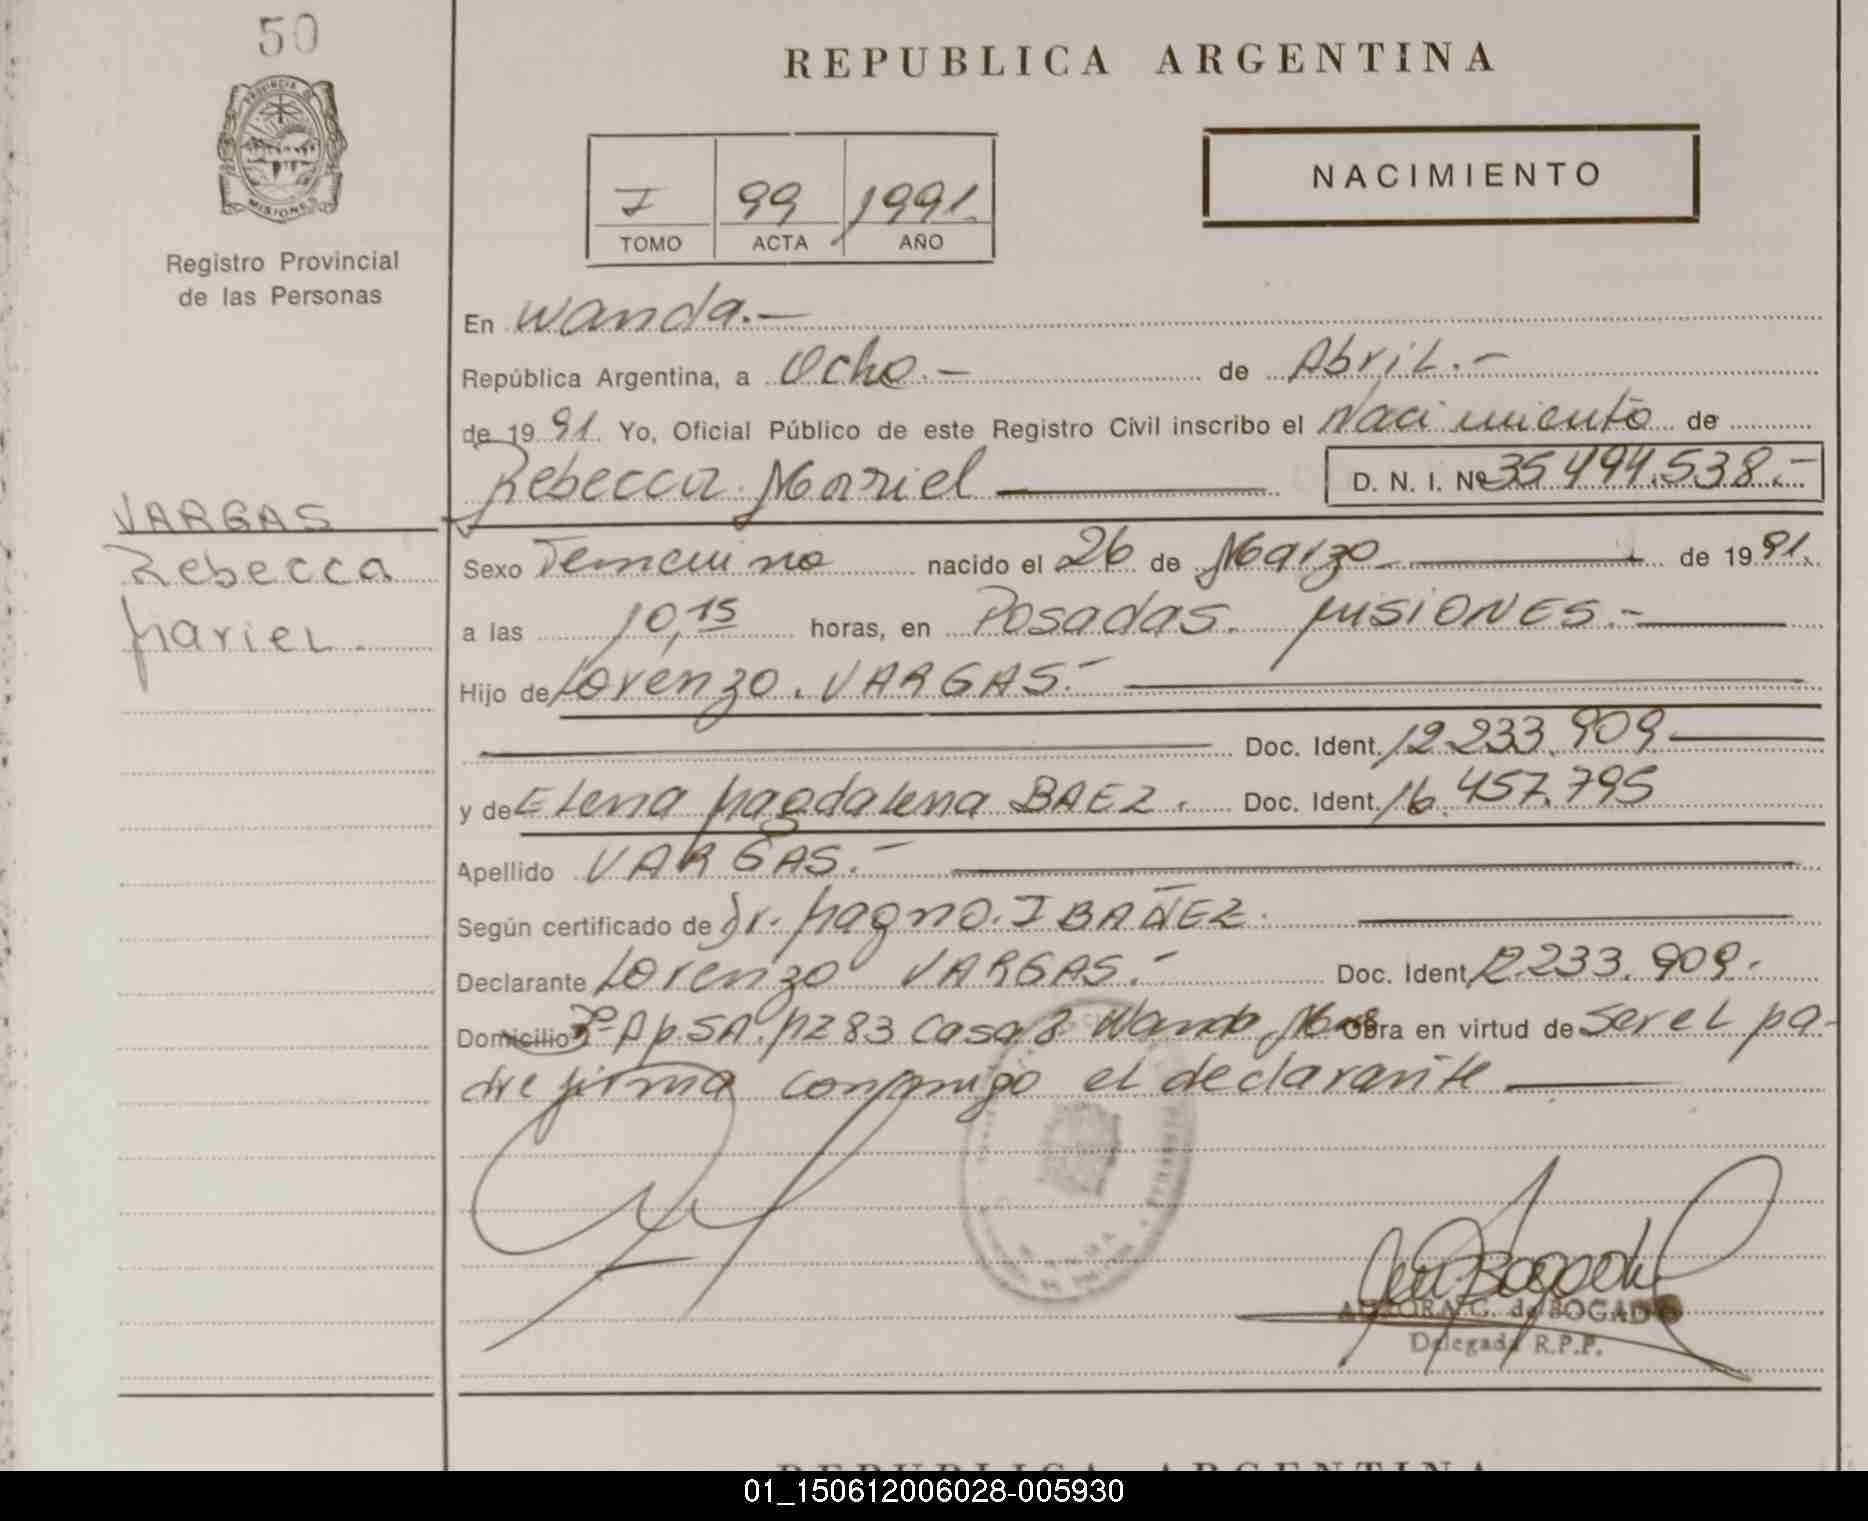 50
REPUBLICA ARGENTINA
PROVINCIA DE
MISIONES
Registro Provincial
de las Personas
NACIMIENTO
I 99 1991.
TOMO ACTA AÑO
En Wanda.-
República Argentina, a Ocho.- de Abril.-
de 1991. Yo, Oficial Público de este Registro Civil inscribo el Nacimiento de
Rebecca Mariel D. N. I. Nº 35494.538.-
VARGAS
Rebecca
Mariel.
Sexo Femenino nacido el 26 de Marzo de 1991.
a las 10,15 horas, en Posadas. MISIONES.-
Hijo de Lorenzo. VARGAS.-
Doc. Ident. 12.233.909
y de Elena Magdalena BAEZ. Doc. Ident. 16.457.795
Apellido VARGAS.-
Según certificado de Dr. Magno. IBAÑEZ.
Declarante Lorenzo VARGAS.- Doc. Ident. 12.233.909.
Domicilio Ap.SA. MZ 83 Casa 8 Wanda Obra en virtud de ser el pa-
dre firma conmigo el declarante
AURORA G. de BOGADO
Delegada R.P.P.
REPUBLICA ARGENTINA
01_150612006028-005930